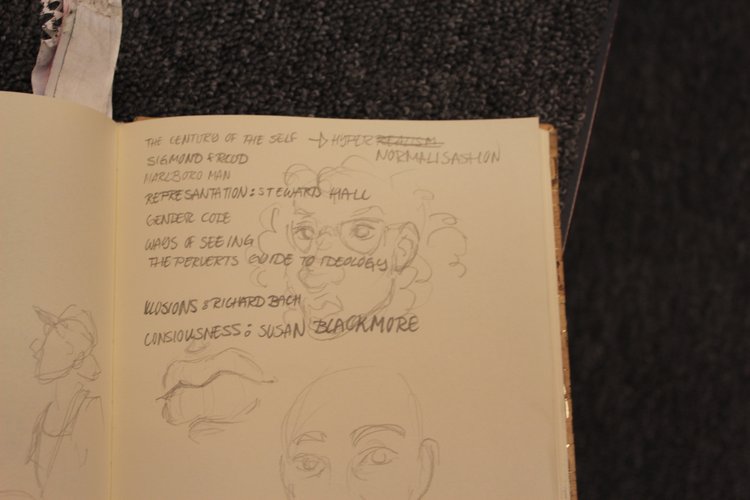 THE CENTURY OF THE SELF → HYPER REALISM
NORMALISASHION
SIGMOND FREUD
MARLBORO MAN
REPRESANTATION: STEWARD HALL
GENDER CODE
WAYS OF SEEING
THE PERVERTS GUIDE TO IDEOLOGY
ILUSIONS : RICHARD BACH
CONSIOUSNESS: SUSAN BLACKMORE